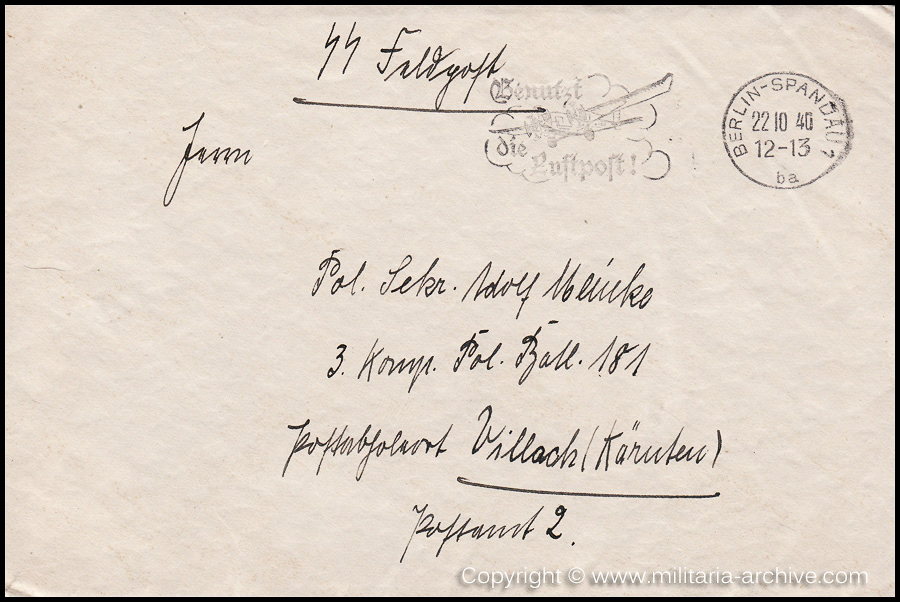 SS Feldpost
Benutzt
die
Luftpost!
BERLIN-SPANDAU 1
22 10 40
12-13
ba
Herrn
Pol. Sekr. Adolf Meinke
3. Komp. Pol. Batl. 181
Postabholeort Villach (Kärnten)
Postamt 2.
Copyright © www.militaria-archive.com